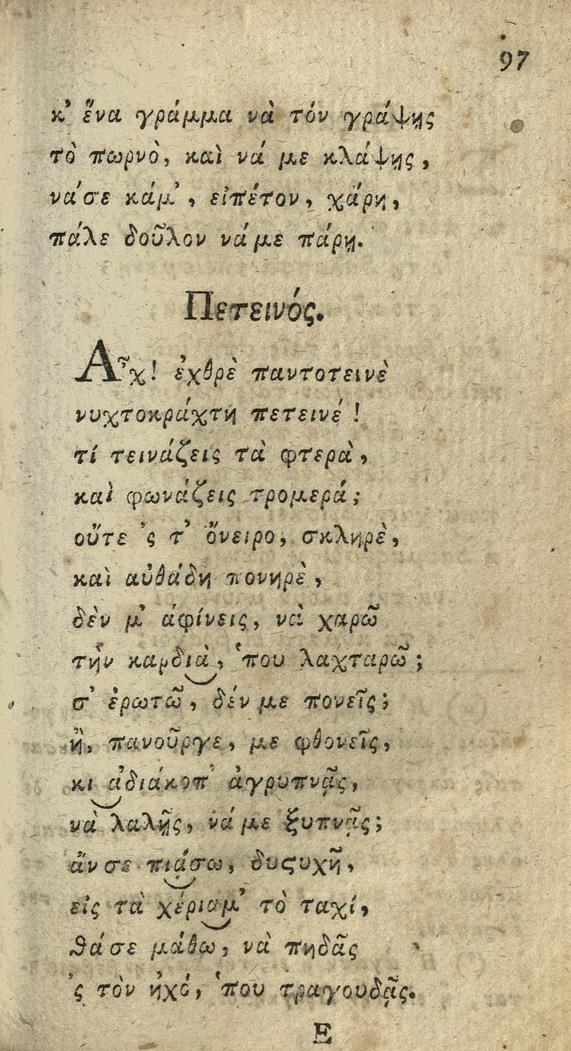 97
κ' ἕνα γράμμα νὰ τόν γράψῃς
τὸ πωρνὸ, καὶ νά με κλάψῃς,
νά'σε κάμ', εἰπέτον, χάρη,
πάλε δοῦλον νά με πάρῃ.
Πετεινός.
Ἄχ! ἐχθρὲ παντοτεινὲ
νυχτοκράχτη πετεινέ!
τί τεινάζεις τὰ φτερὰ,
καὶ φωνάζεις τρομερά;
οὔτε 'ς τ' ὄνειρο, σκληρὲ,
καὶ αὐθάδη πονηρὲ,
δὲν μ' ἀφίνεις, νὰ χαρῶ
τὴν καρδιὰ, 'που λαχταρῶ;
σ' ἐρωτῶ, δέν με πονεῖς;
ἢ, πανοῦργε, με φθονεῖς,
κι ἀδιάκοπ' ἀγρυπνᾷς,
νὰ λαλῇς, νά με ξυπνᾷς;
ἄν σε πιάσω, δυςυχῆ,
εἰς τὰ χέριαμ' τὸ ταχί,
θά σε μάθω, νὰ πηδᾶς
'ς τὸν ἠχό, 'που τραγουδᾷς.
E